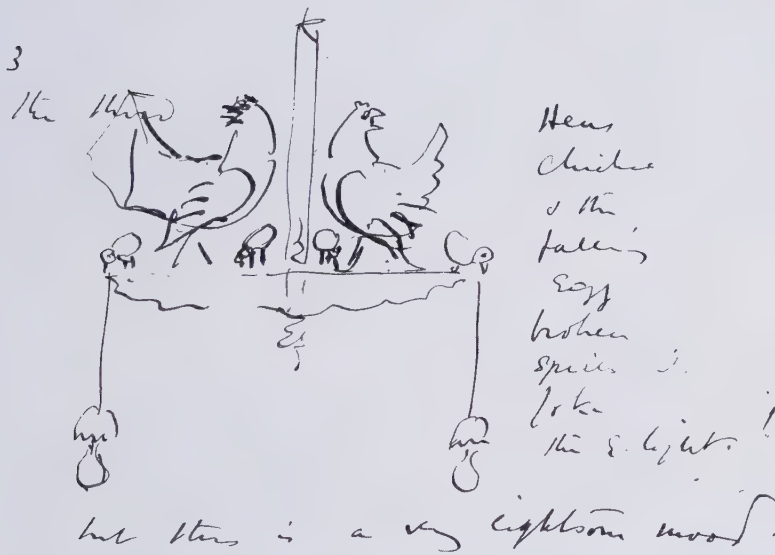 3
the third
Hens
chicks
& the
falling
Egg
broken
the E. light.
but this is a very lightsome mood